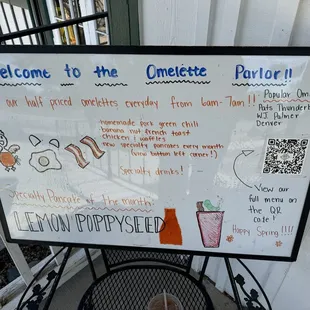 elcome to the Omelette Parlor!!
our half priced omelettes everyday from 6am-7am!!
homemade pork green chili
banana nut french toast
chicken & waffles
new specialty pancakes every month
(view bottom left corner!)
Specialty drinks!
Popular Om
Pats Thunderb
W.J. Palmer
Denver
View our
full menu on
the QR
code!
Happy Spring !!!!
Specialty Pancake of the month:
LEMON POPPYSEED